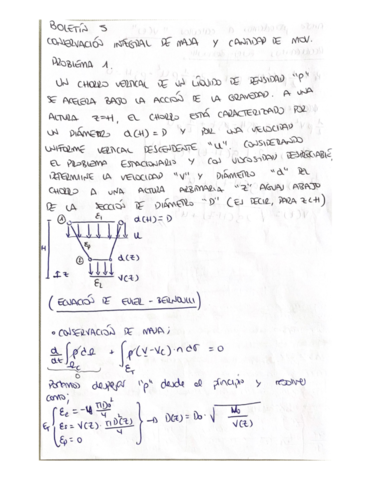 BOLETÍN 3
CONSERVACIÓN INTEGRAL DE MASA Y CANTIDAD DE MOV.
PROBLEMA 1.
UN CHORRO VERTICAL DE UN LÍQUIDO DE DENSIDAD "ρ"
SE ACELERA BAJO LA ACCIÓN DE LA GRAVEDAD. A UNA
ALTURA z=H, EL CHORRO ESTÁ CARACTERIZADO POR
UN DIÁMETRO d(H) = D Y POR UNA VELOCIDAD
UNIFORME VERTICAL DESCENDENTE "U". CONSIDERANDO
EL PROBLEMA ESTACIONARIO Y CON VISCOSIDAD DESPRECIABLE,
DETERMINE LA VELOCIDAD "V" Y DIÁMETRO "d" DEL
CHORRO A UNA ALTURA ARBITRARIA "z" AGUAS ABAJO
DE LA SECCIÓN DE DIÁMETRO "D" (ES DECIR, PARA z<H)
A Σ1 d(H) = D
U
H Σp
d(z)
z Σ2 V(z)
(ECUACIÓN DE EULER - BERNOULLI)
• CONSERVACIÓN DE MASA;
d/dt ∫ ρ d + ∫ ρ (V-Vc) · n dσ = 0
0
Podemos despejar "ρ" desde el principio y resolver
como;
Σe = -U πD0²/4
Σs = V(z) · πD²(z)/4
Σp = 0
→ D(z) = D0 · √ U0/V(z)